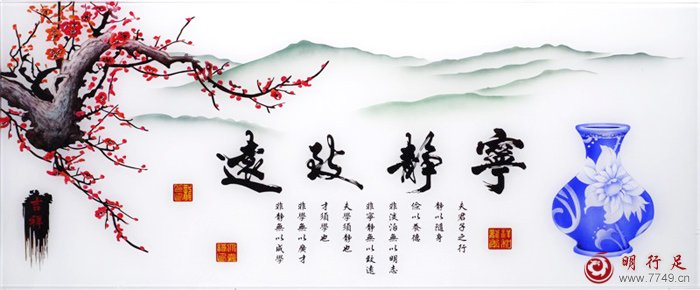 寧靜致遠
夫君子之行
靜以隨身
儉以養德
非淡泊無以明志
非寧靜無以致遠
夫學須靜也
才須學也
非學無以廣才
非靜無以成學
吉祥
明行足
www.7749.cn